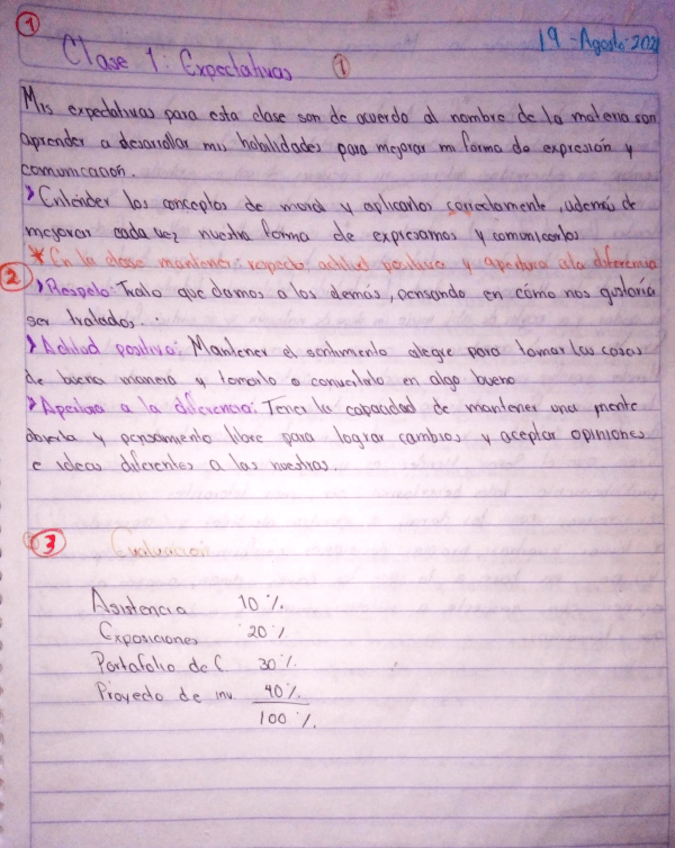 1
19-Agosto-2021
Clase 1: Expectativas 1
Mis expectativas para esta clase son de acuerdo al nombre de la materia son
aprender a desarrollar mis habilidades para mejorar mi forma de expresión y
comunicación.
Entender los conceptos de moral y aplicarlos correctamente, además de
mejorar cada vez nuestra forma de expresarnos y comunicarlos
* En la clase mantener: respeto, actitud positiva y apertura a la diferencia
2 Respeto: Trato que damos a los demás, pensando en cómo nos gustaría
ser tratados.
Actitud positiva: Mantener el sentimiento alegre para tomar las cosas
de buena manera y tomarlo o convertirlo en algo bueno
Apertura a la diferencia: Tener la capacidad de mantener una mente
abierta y pensamiento libre para lograr cambios y aceptar opiniones
e ideas diferentes a las nuestras.
3 Evaluación
Asistencia 10%
Exposiciones 20%
Portafolio de C. 30%
Proyecto de inv. 40%
100%